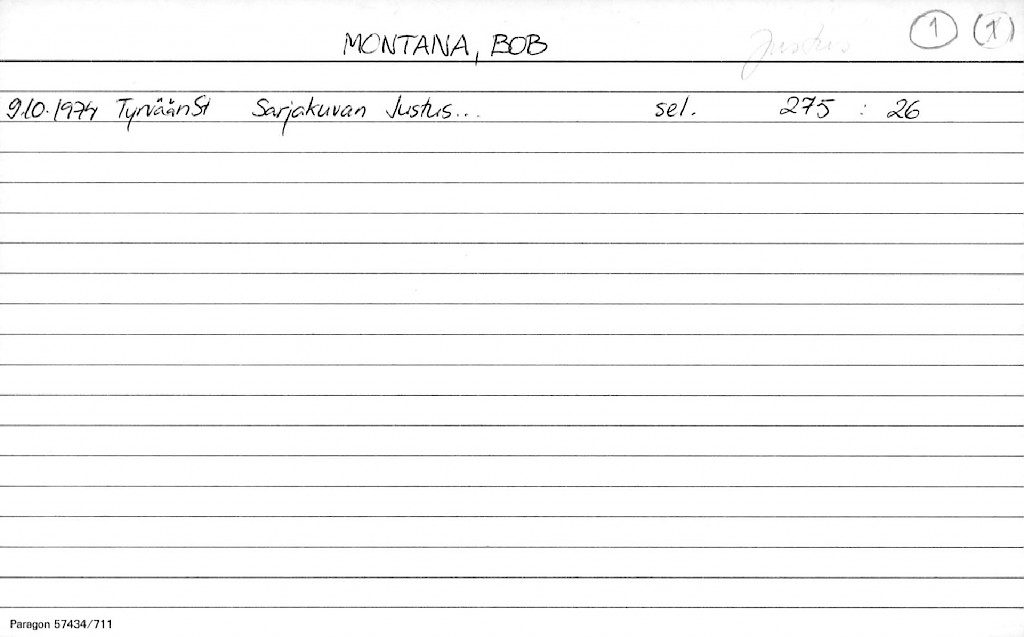 MONTANA, BOB Justus 1 (1)
9.10.1974 TyrväänS1 Sarjakuvan Justus... sel. 275 : 26
Paragon 57434/711